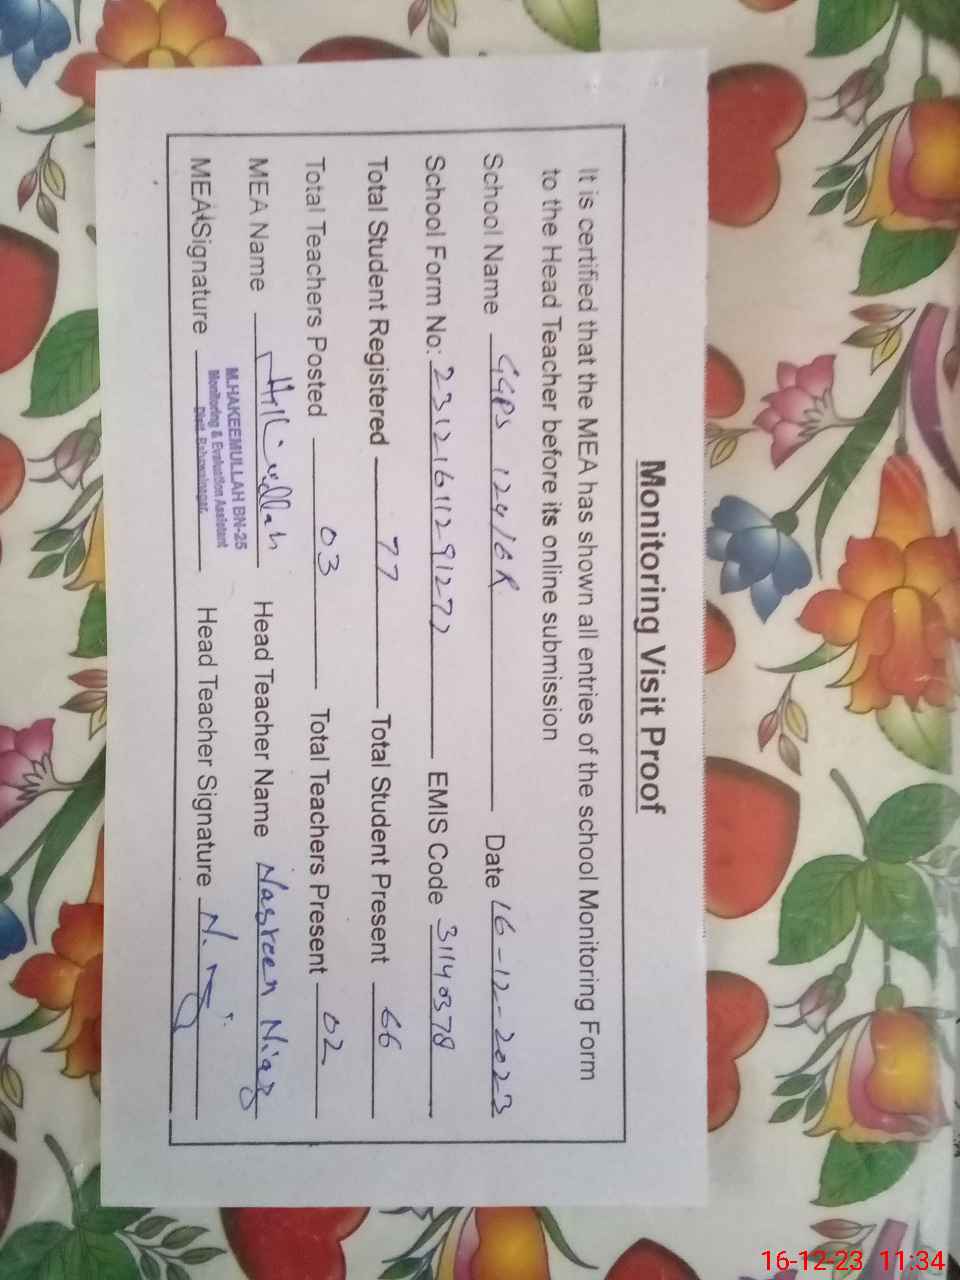 Monitoring Visit Proof
It is certified that the MEA has shown all entries of the school Monitoring Form
to the Head Teacher before its online submission
School Name GGPS 124/6R Date 16-12-2023
School Form No: 231216112912 EMIS Code 31140378
Total Student Registered 77 Total Student Present 66
Total Teachers Posted 03 Total Teachers Present 02
MEA Name Head Teacher Name Nasreen Niaz
M.HAKEEMULLAH BN-25
Monitoring & Evaluation Assistant
Distt. Bahawalnagar.
MEA Signature Head Teacher Signature
16-12-23 11:34